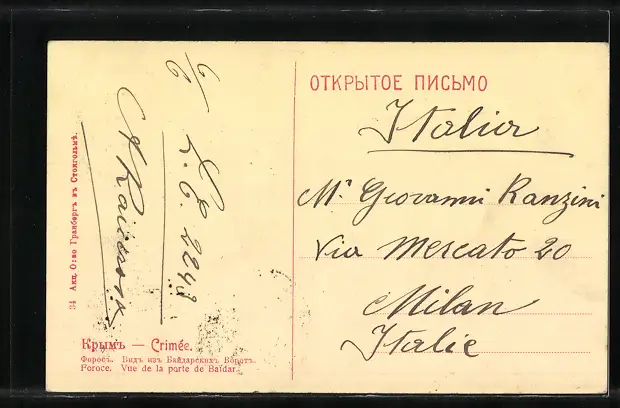 ОТКРЫТОЕ ПИСЬМО
Italia
Mr Giovanni Ranzini
Via Mercato 20
Milan
Italie
6/6
L.C. 2243
34 Акц. О-во Гранбергъ въ Стокгольмѣ.
Крымъ — Crimée.
Форосъ. Видъ изъ Байдарскихъ Воротъ.
Foroce. Vue de la porte de Baïdar.